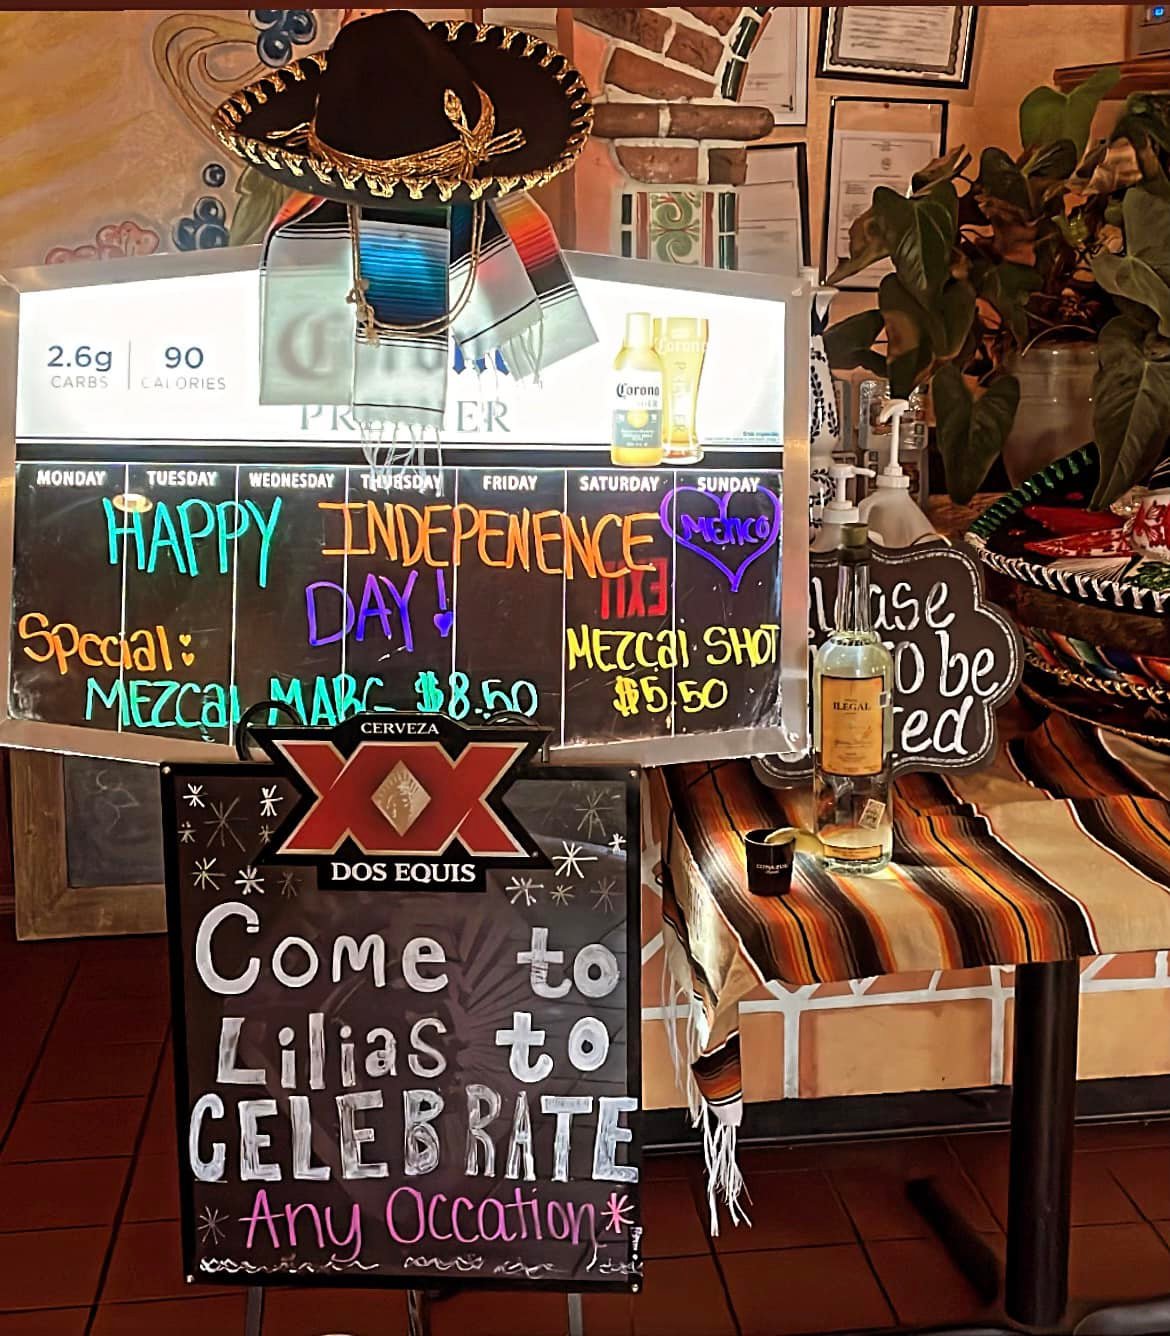 2.6g 90
CARBS CALORIES
Corona
MONDAY TUESDAY WEDNESDAY THURSDAY FRIDAY SATURDAY SUNDAY
HAPPY INDEPENENCE MEXICO
DAY!
EXIT
Special:
MEZCal MARG- $8.50
MEZCal SHOT
$5.50
to be
ILEGAL
CERVEZA
XX
DOS EQUIS
Come to
Lilias to
CELEBRATE
Any Occation